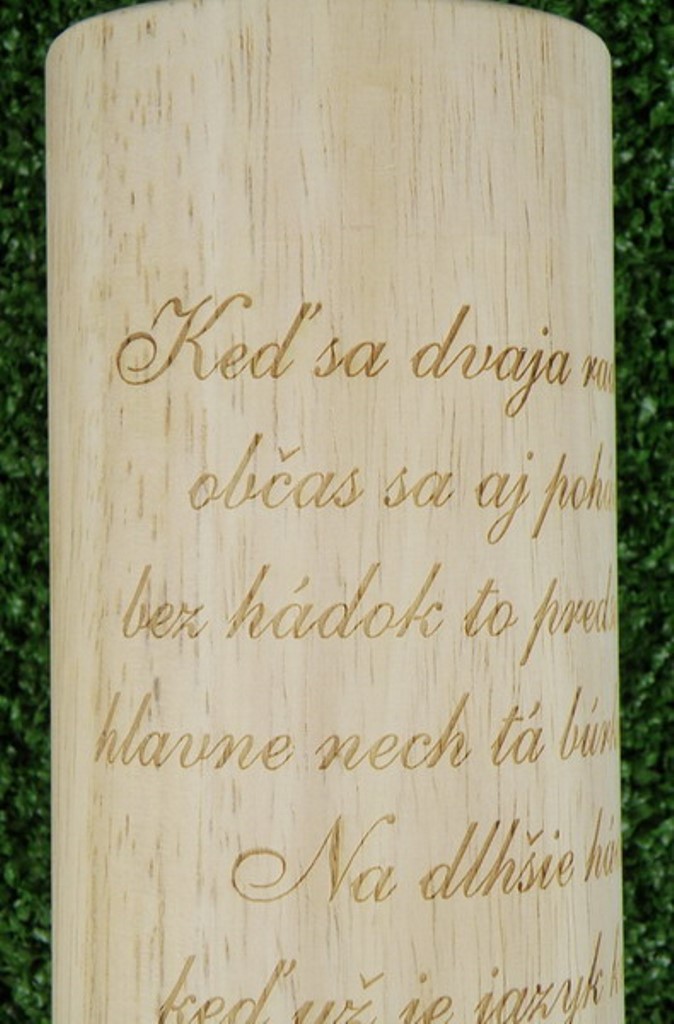 Keď sa dvaja
občas sa aj
bez hádok to
hlavne nech tá
Na dlhšie
keď už je jazyk